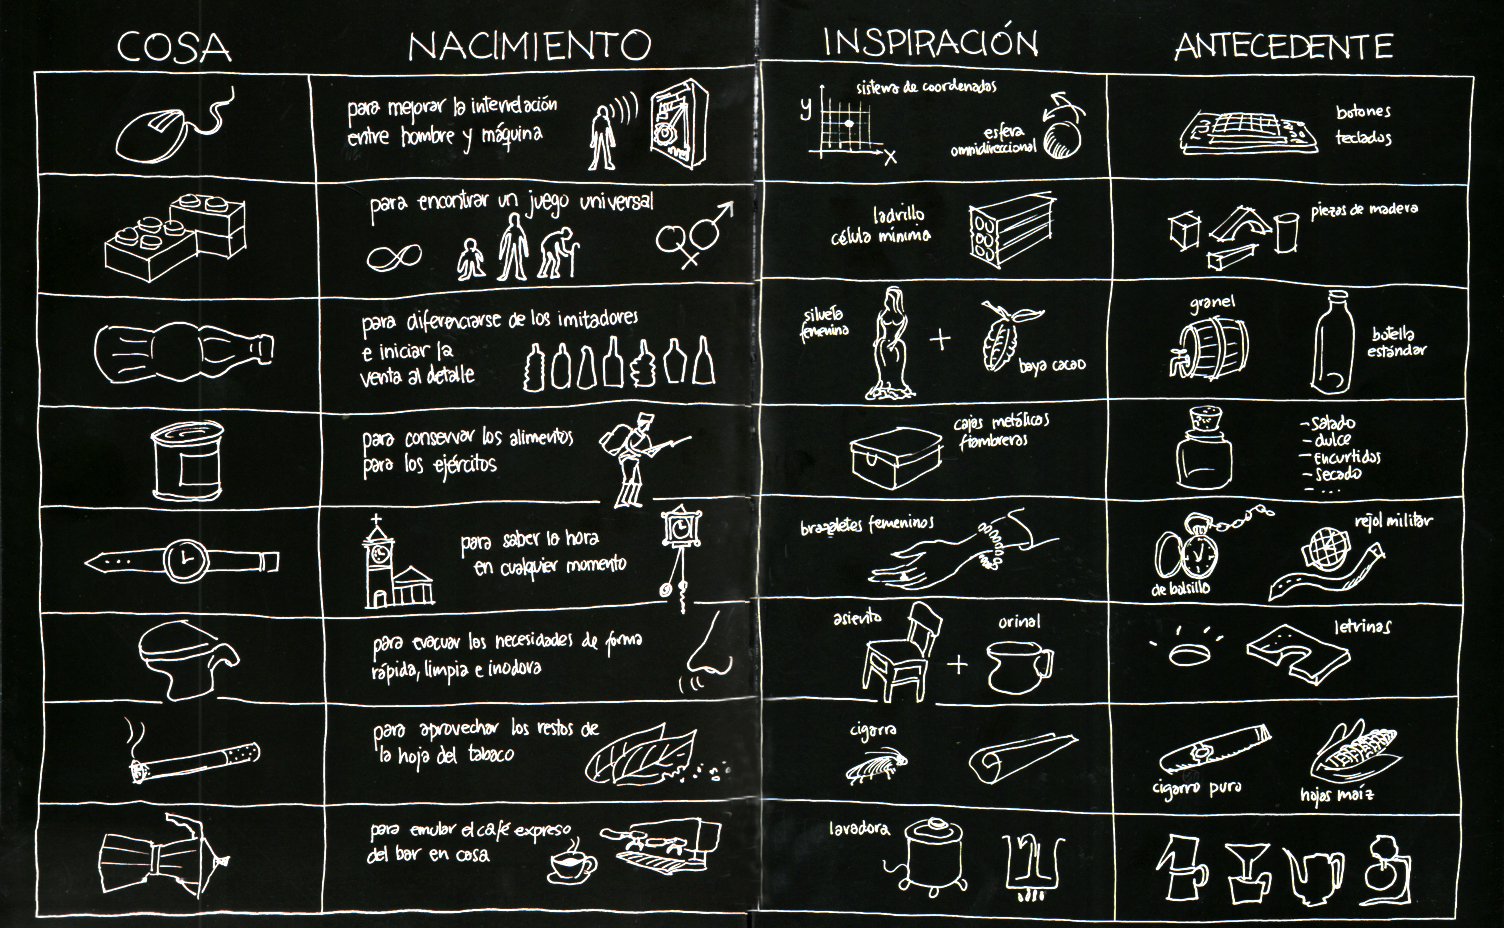 COSA NACIMIENTO INSPIRACIÓN ANTECEDENTE
para mejorar la interrelación
entre hombre y máquina
sistema de coordenadas
y
x
esfera
omnidireccional
botones
teclados
para encontrar un juego universal
ladrillo
célula mínima
piezas de madera
para diferenciarse de los imitadores
e iniciar la
venta al detalle
silueta
femenina
+
baya cacao
granel
botella
estándar
para conservar los alimentos
para los ejércitos
cajas metálicas
fiambreras
- salado
- dulce
- encurtidos
- secado
- ...
para saber la hora
en cualquier momento
brazaletes femeninos
de bolsillo
rejol militar
para evacuar las necesidades de forma
rápida, limpia e inodora
asiento
+
orinal
letrinas
para aprovechar los restos de
la hoja del tabaco
cigarra
cigarro puro
hojas maíz
para emular el café expreso
del bar en cosa
lavadora